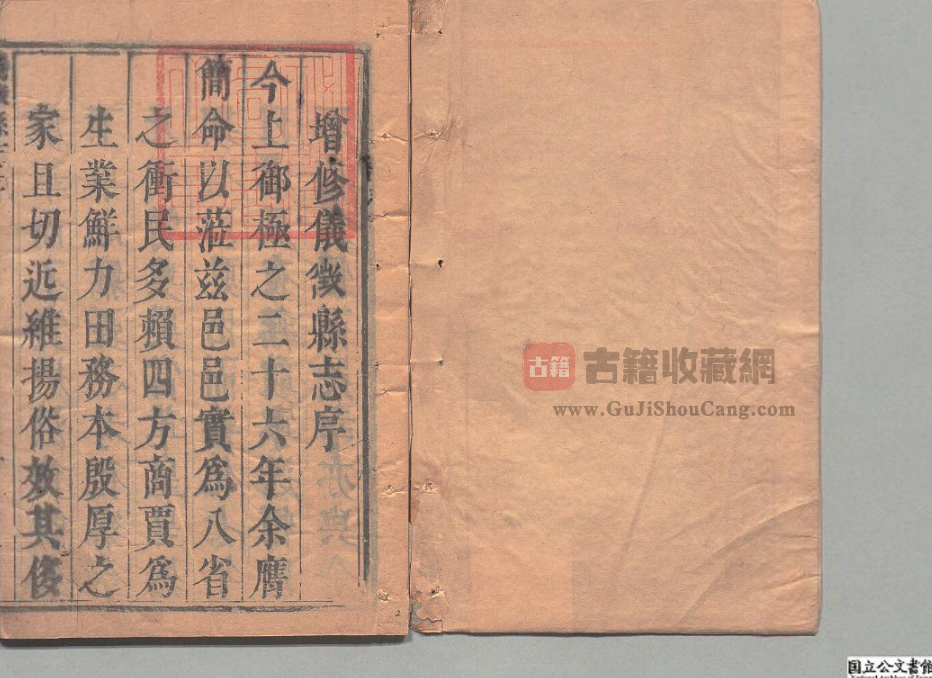 增修儀徴縣志序
今上御極之二十六年余膺
簡命以蒞茲邑邑實為八省
之衝民多賴四方商賈為
生業鮮力田務本殷厚之
家且切近維揚俗效其侈
古籍
古籍收藏網
www.GuJiShouCang.com
国立公文書館